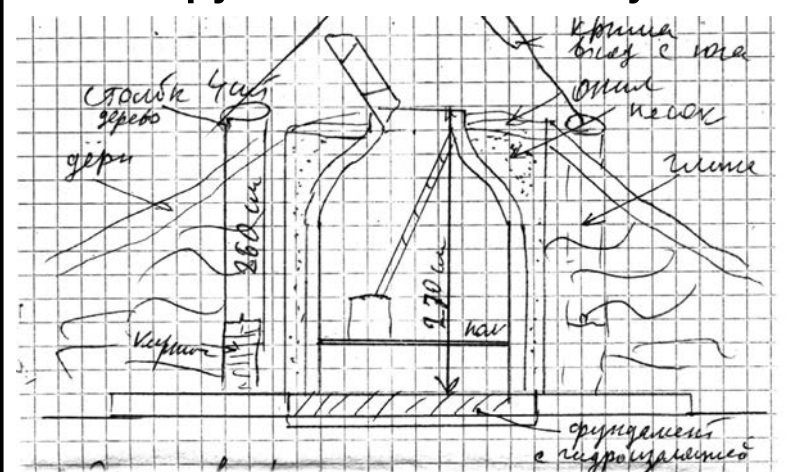 крыша
вход с юга
столбы 4 шт
дерево
опил
песок
дерн
глина
260 см
270 см
пол
кирпич
фундамент
с гидроизоляцией